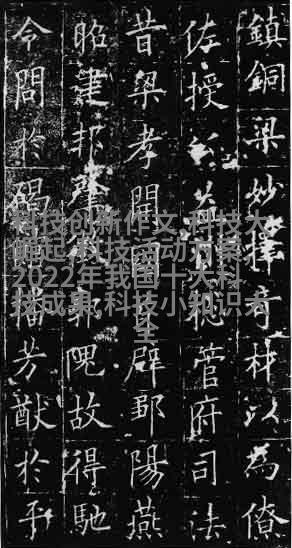 鎮銅梁妙擇奇材以為僚
佐授總管府司法
昔梁孝開國辟鄒陽燕
昭建邦肇郭隗故得馳
令問於碣播芳猷於平
科技创新作文,科技大
崛起,科技活动方案,
2022年我国十大科
技成果,科技小知识大
全